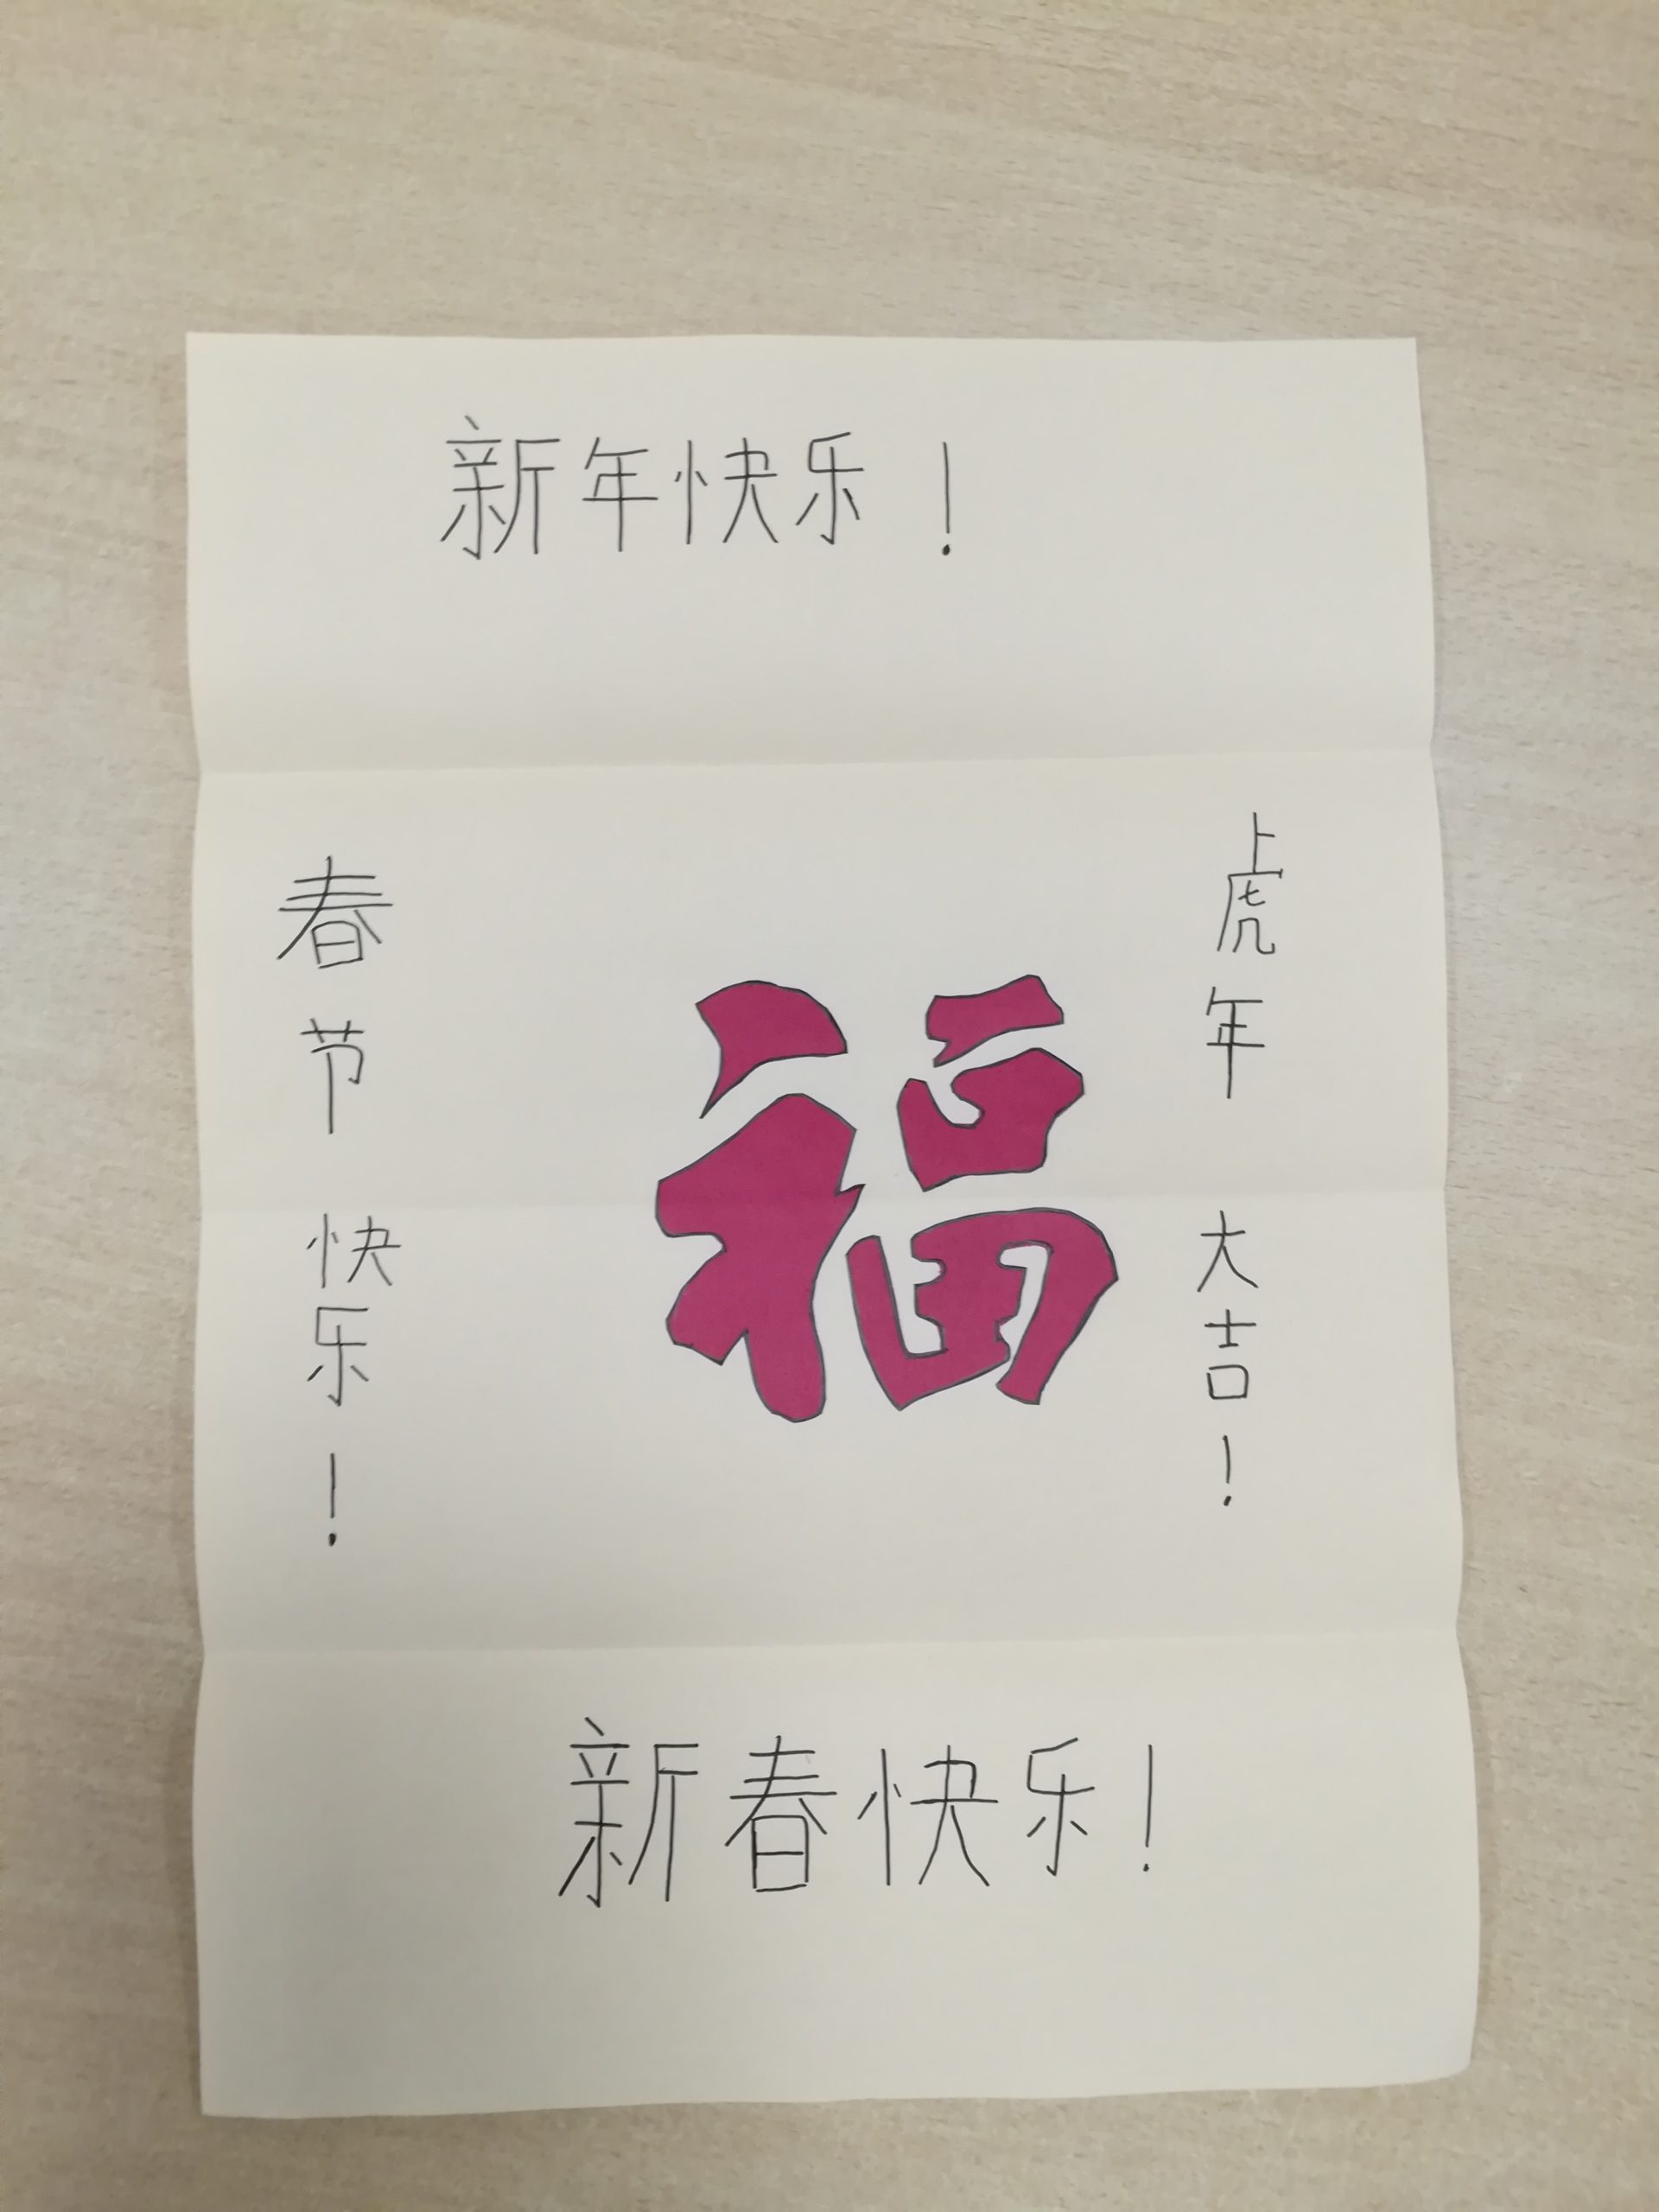 新年快乐！
春节快乐！
福
虎年大吉！
新春快乐！